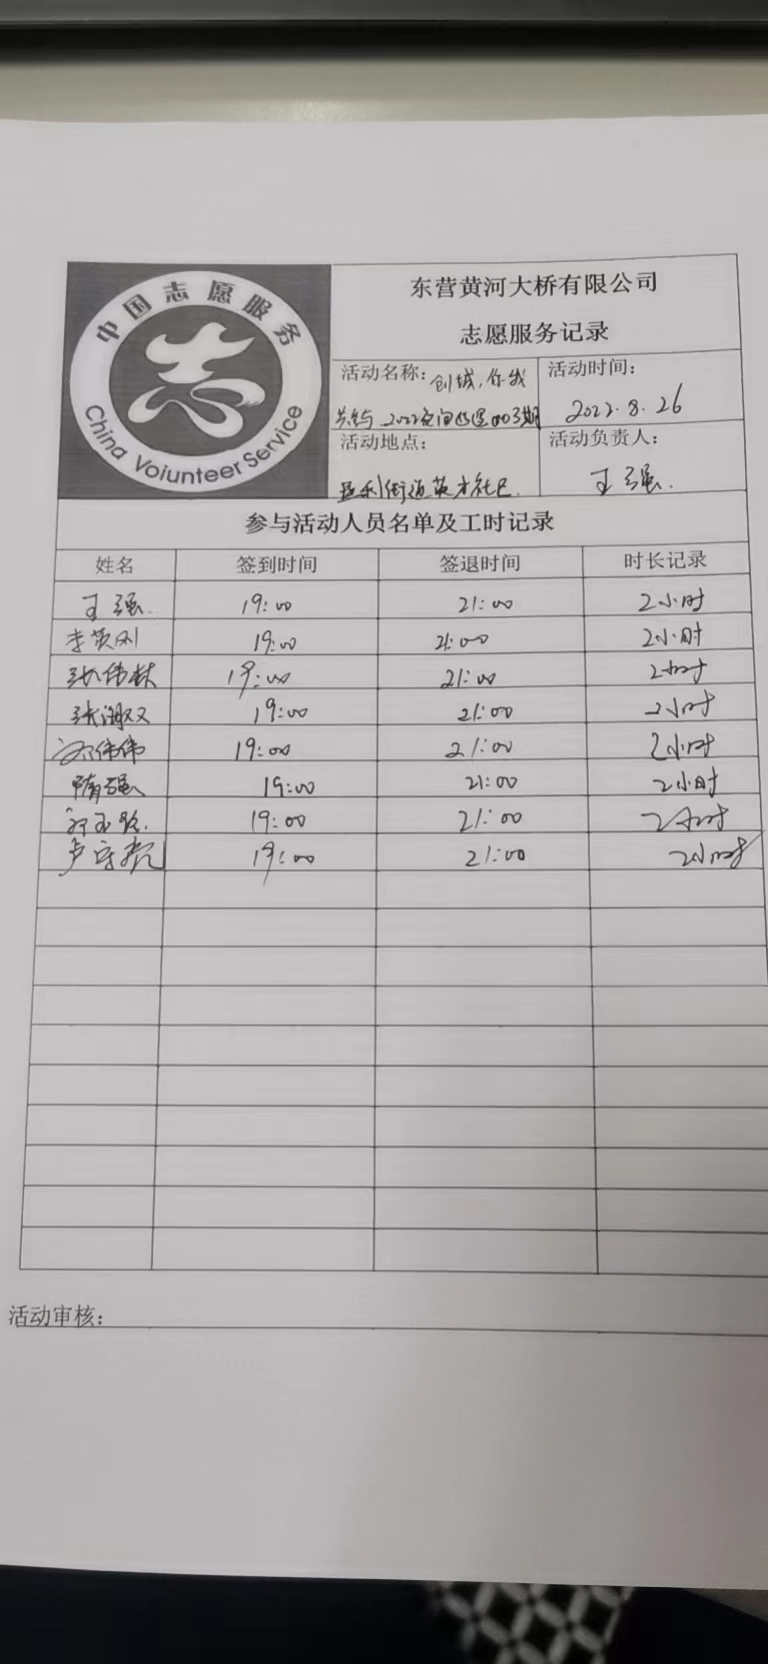 中国志愿服务
China Voiunteer Service
东营黄河大桥有限公司
志愿服务记录
活动名称：创城，你我
共参与 2022夜间巡逻003期
活动时间：
2022.8.26
活动地点：
胜利街道英才社区
活动负责人：
王强.
参与活动人员名单及工时记录
姓名 签到时间 签退时间 时长记录
王强. 19:00 21:00 2小时
李英刚 19:00 21:00 2小时
张伟林 19:00 21:00 2小时
张淑双 19:00 21:00 2小时
伟伟 19:00 21:00 2小时
隋强 19:00 21:00 2小时
19:00 21:00 2小时
卢守亮 19:00 21:00 2小时
活动审核：